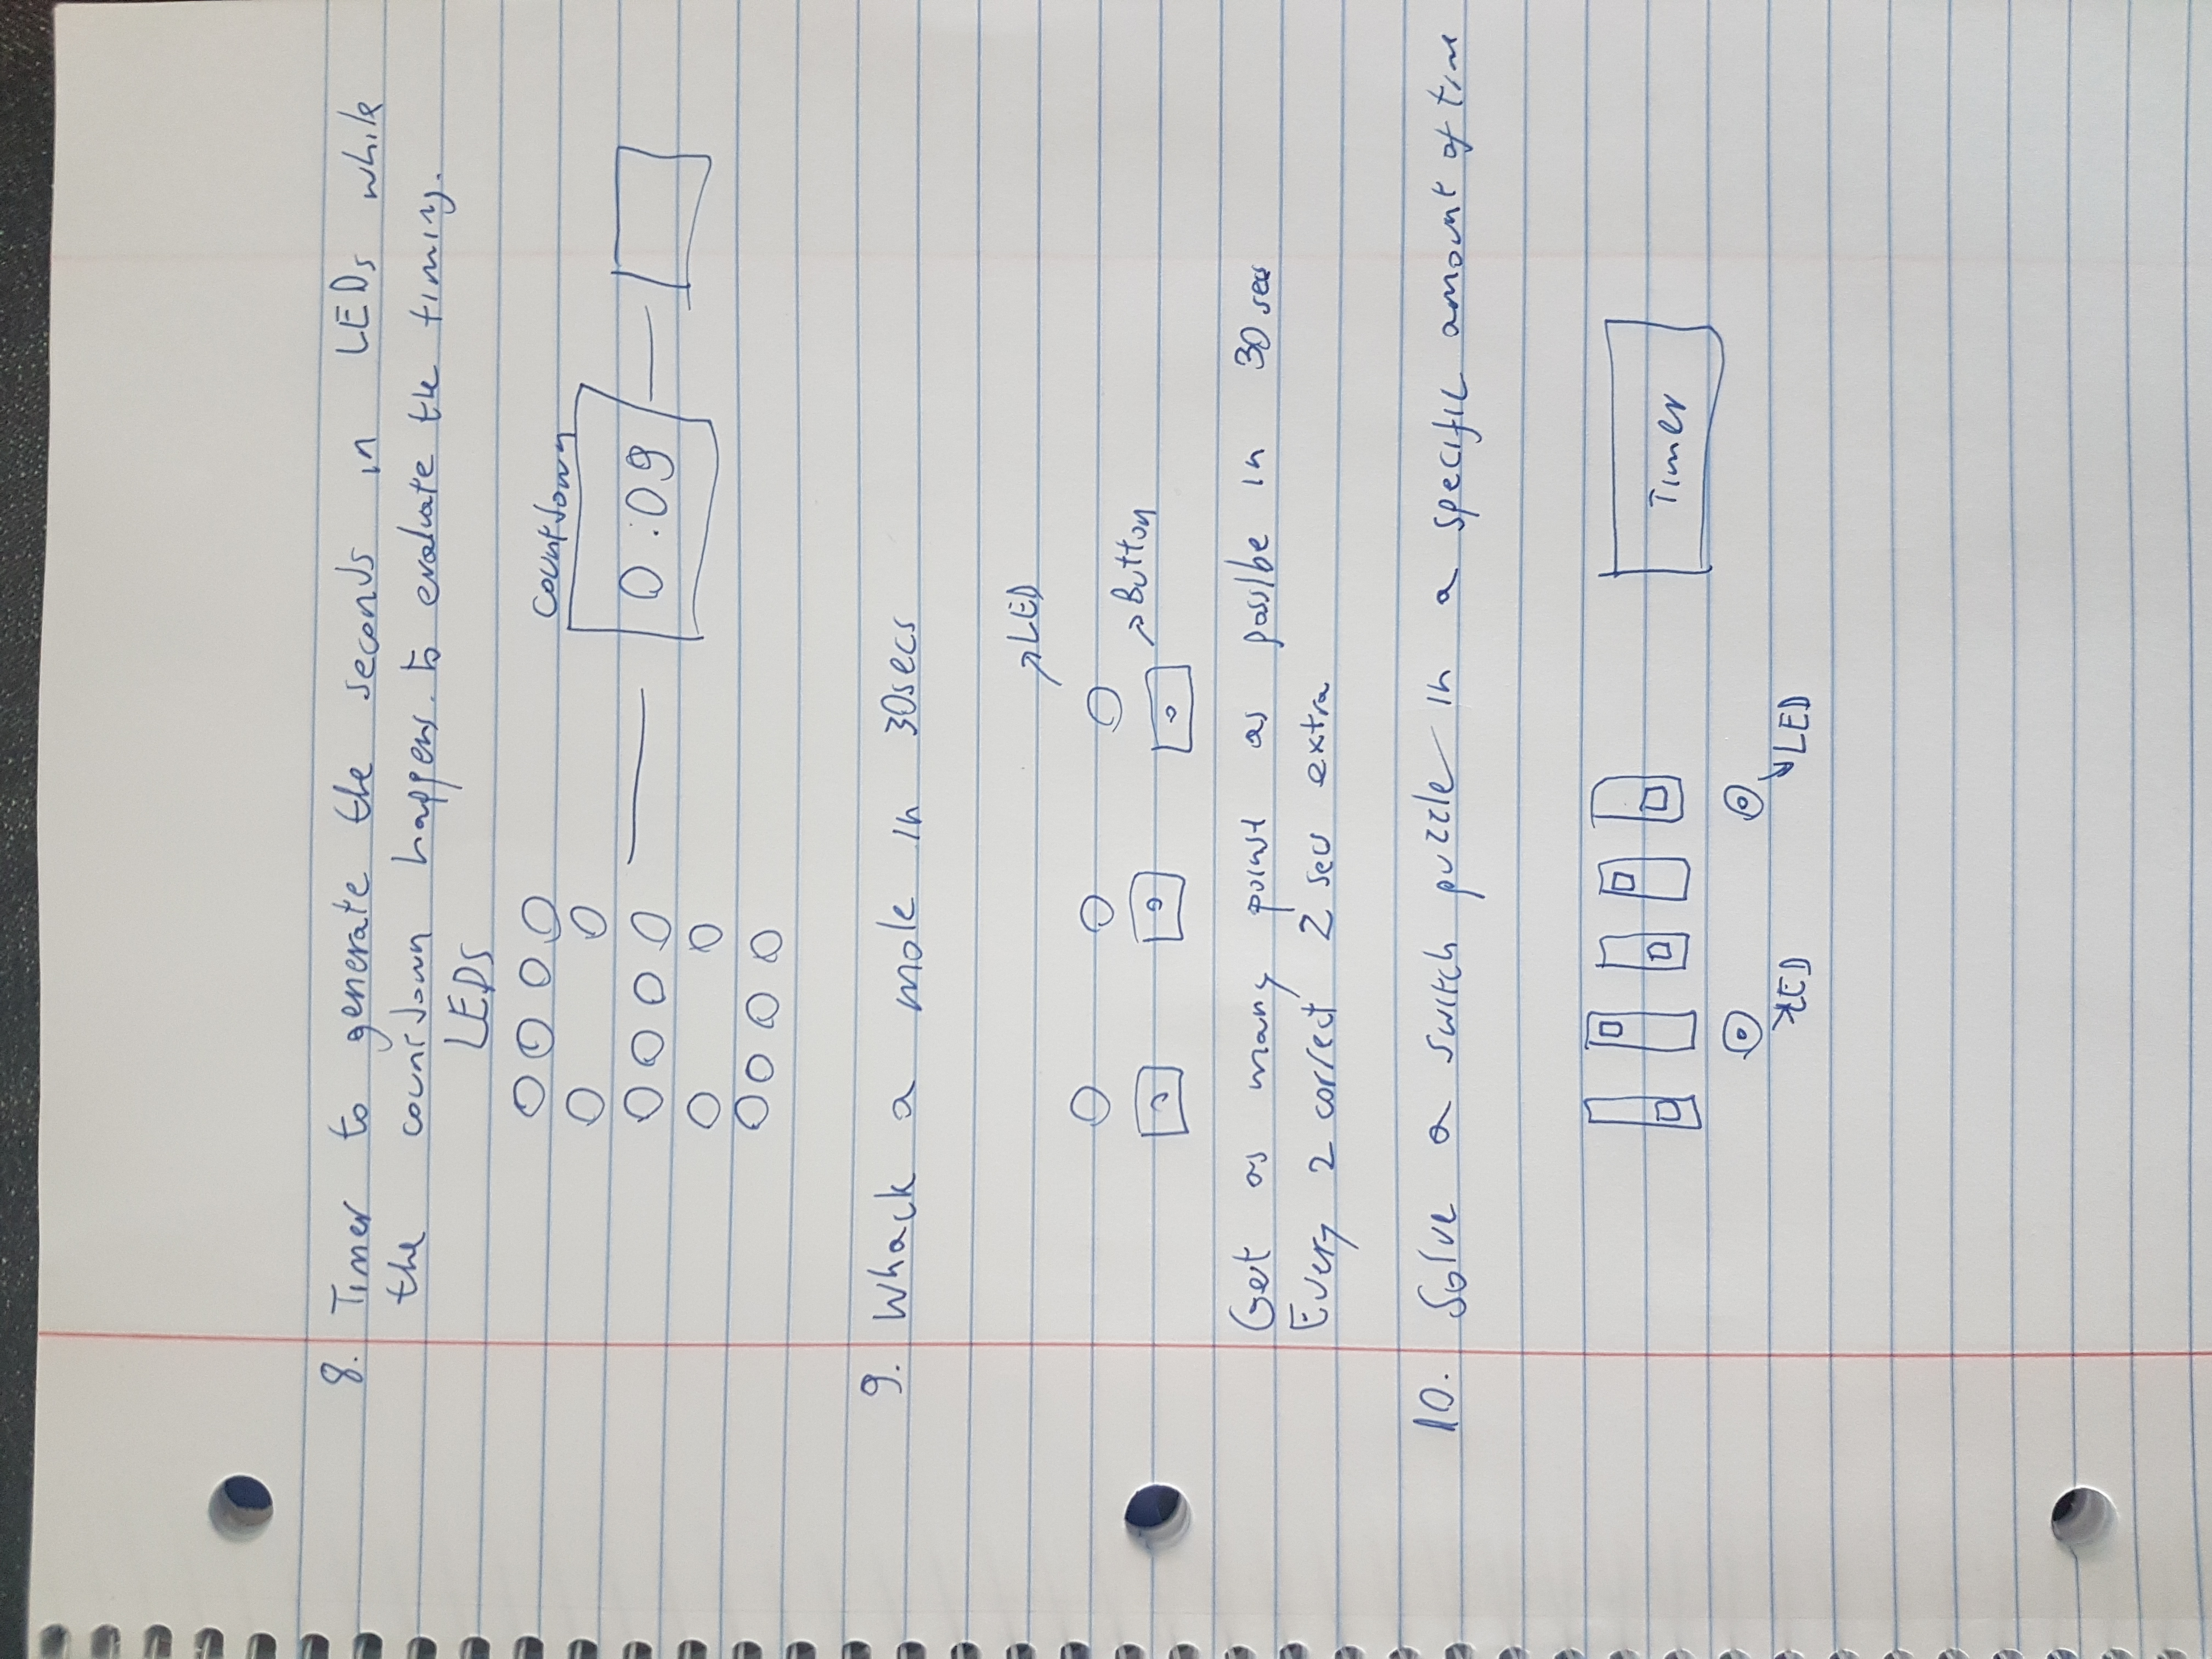 8. Timer to generate the seconds in LEDs while
the countdown happens. to evaluate the timing.
LEDS
Countdown
0:09
9. Whack a mole in 30secs
LED
Button
Get as many poinst as posslbe in 30 secs
Every 2 correct 2 secs extra
10. Solve a switch puzzle in a specific amount of time
Timer
LED
LED